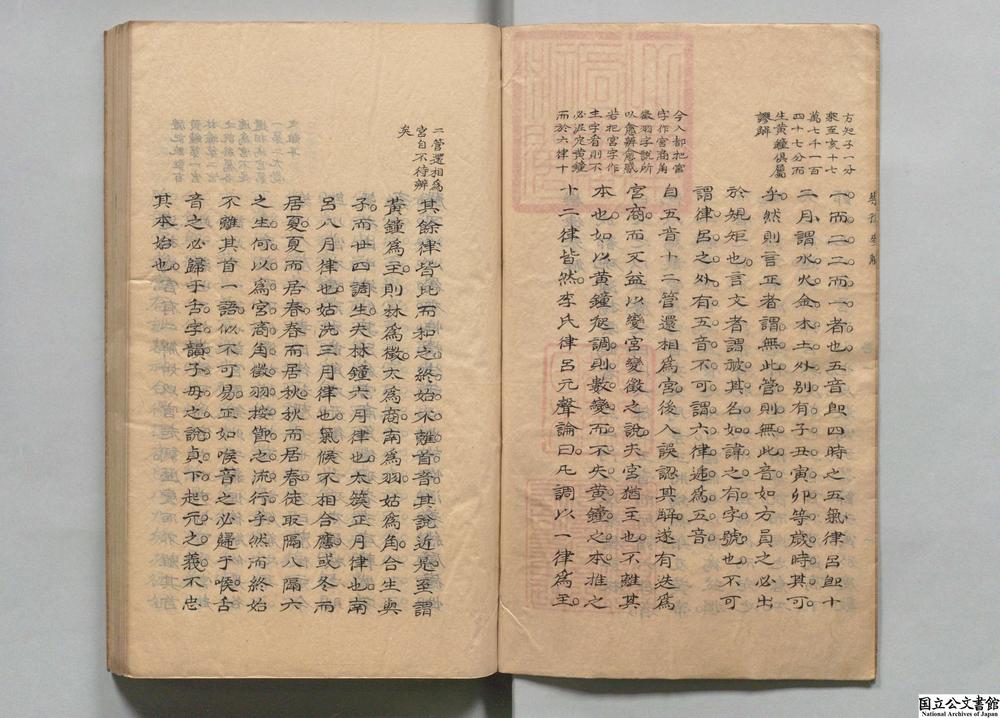 方知子一分
衆至亥十七
萬七千一百
四十七分而
生黃鐘俱屬
謬解
一而二二而一者也五音卽四時之五氣律呂卽十
二月謂水火金木土外別有子丑寅卯等歲時其可
乎然則言正者謂無此管則無此音如方員之必出
於規矩也言文者謂被其名如諱之有字號也不可
謂律呂之外有五音不可謂六律遞爲五音
今人却把宮
字作宮商角
徵羽字說所
以愈辨愈惑
若把宮字作
主字看則不
必泥定黃鐘
而於六律十
自五音十二管還相爲宮後人誤認其解遂有迭爲
宮商而又益以變宮變徵之說夫宮猶主也不離其
本也如以黃鐘起調則數變而不失黃鐘之本推之
十二律皆然李氏律呂元聲論曰凡調以一律爲主
二管還相爲
宮自不待辨
矣
其餘律皆比而和之終始不離首音其說近是至謂
黃鐘爲主則林爲徵太爲商南爲羽姑爲角合生輿
子而廿四調生夫林鐘六月律也太簇正月律也南
呂八月律也姑洗三月律也氣候不相合應或冬而
居夏夏而居春春而居秋秋而居春徒取隔八隔六
之生何以爲宮商角徵羽按節之流行乎然而終始
不離其首一語似不可易正如喉音之必歸于喉舌
音之必歸于舌字韻子母之說貞下起元之義不忘
其本始也
国立公文書館
National Archives of Japan